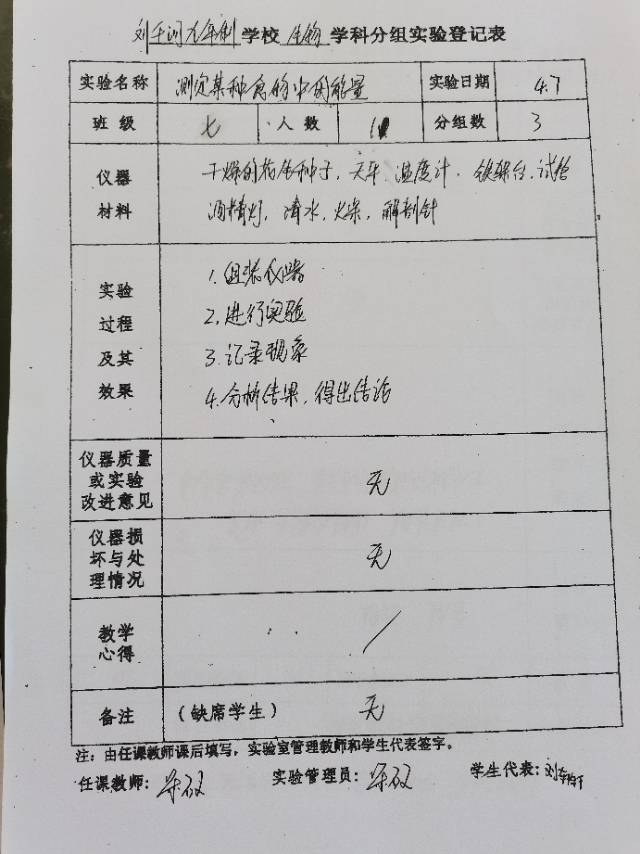 刘于润九年制学校 生物 学科分组实验登记表
实验名称 测定某种食物中的能量 实验日期 4.7
班级 七 人数 分组数 3
仪器材料 干燥的花生种子，天平，温度计，铁架台，试管
酒精灯，清水，火柴，解剖针
实验过程及其效果
1.组装仪器
2.进行实验
3.记录现象
4.分析结果，得出结论
仪器质量或实验改进意见 无
仪器损坏与处理情况 无
教学心得 /
备注 （缺席学生） 无
注：由任课教师课后填写，实验室管理教师和学生代表签字。
任课教师： 实验管理员： 学生代表：